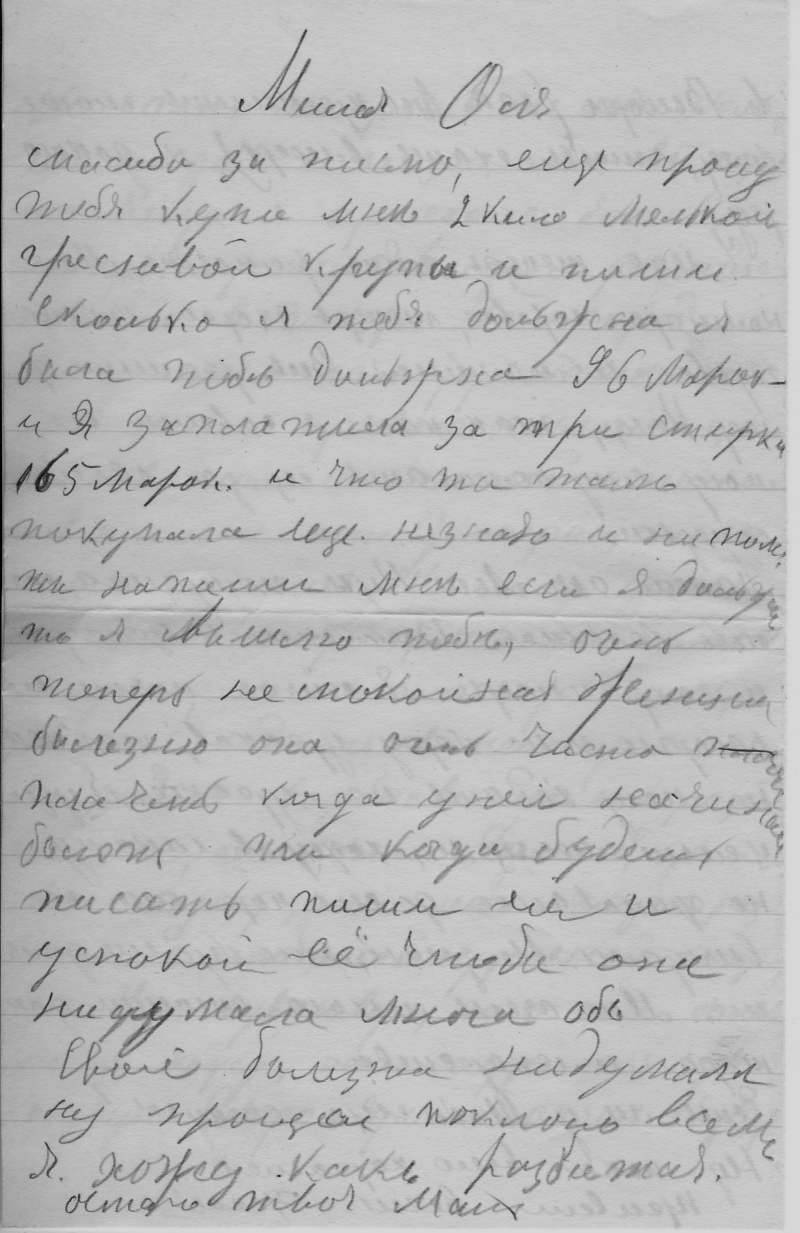 Милая Оля
спасибо за писмо, еще прошу
тебя купи мнѣ 2 кило мелкой
гречневой крупы и пиши
сколько я тебя должна я
была тебѣ должна 96 Марок
и Я заплатила за три стирки
165 марок. и что ты там
покупала еще. незнаю и ни пом.
ты напиши мнѣ если я
то я вышлю тебѣ, очень
теперь не спокойная
болезню она очень часто
плачеть когда у ней начин
болеть ты когда будешь
писать пиши ей и
успокой её чтобы она
нидумала многа объ
свое болезна нидумала
ну прощай поклонъ всемъ
я. хожу какъ разбитая.
остаю твоя Мать